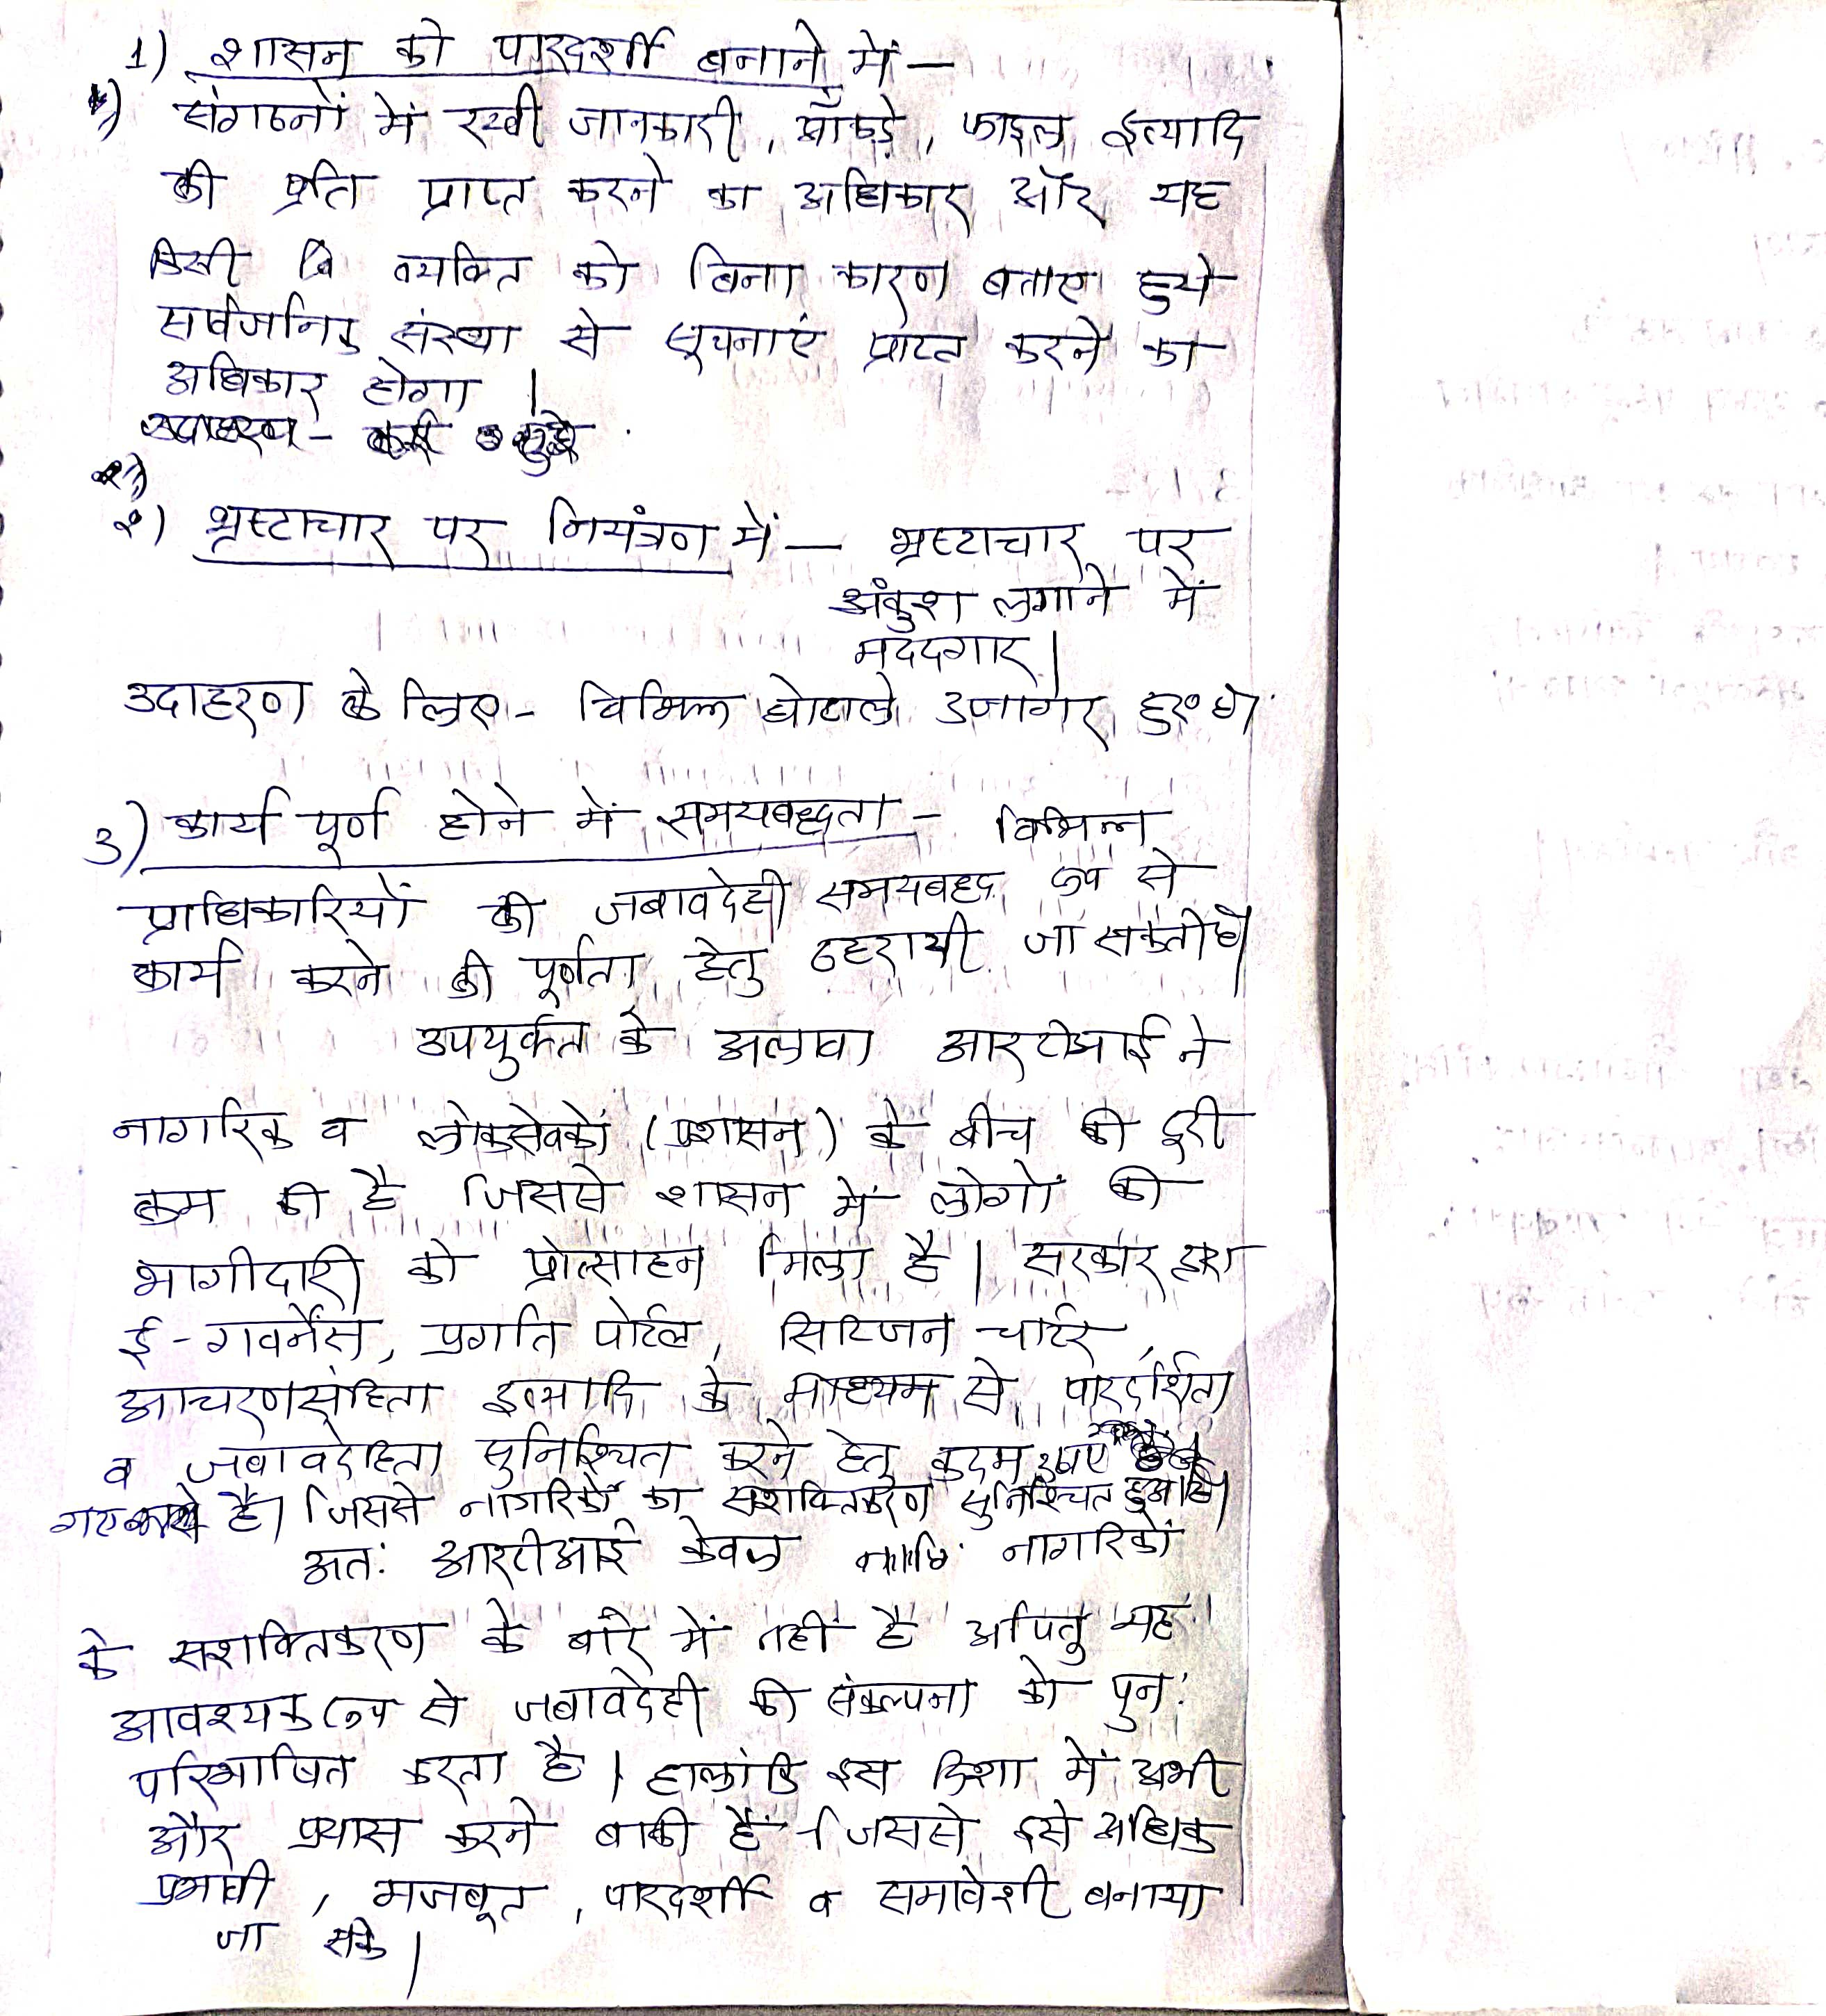 1) शासन को पारदर्शी बनाने में —
संगठनों में रखी जानकारी, आँकड़े, फाइल इत्यादि
की प्रति प्राप्त करने का अधिकार और यह
किसी व्यक्ति को बिना कारण बताए हुये
सार्वजनिक संस्था से सूचनाएं प्राप्त करने का
अधिकार होगा |
उदाहरण -
२) भ्रष्टाचार पर नियंत्रण में — भ्रष्टाचार पर
अंकुश लगाने में
मददगार |
उदाहरण के लिए - विभिन्न घोटाले उजागर हुए है
3) कार्य पूर्ण होने में समयबद्धता - विभिन्न
प्राधिकारियों की जबावदेही समयबद्ध रूप से
कार्य करने की पूर्णता हेतु ठहरायी जा सकती है|
उपयुर्कत के अलावा आरटीआई ने
नागरिक व लोकसेवकों (प्रशासन) के बीच की दूरी
कम की है जिससे शासन में लोगों की
भागीदारी को प्रोत्साहन मिला है | सरकार द्वारा
ई-गवर्नेंस, प्रगति पोर्टल, सिटिजन चार्टर,
आचरणसंहिता इत्यादि के माध्यम से पारदर्शिता
व जबावदेहिता सुनिश्चित करने हेतु कदम उठाए
गए है| जिससे नागरिकों का सशक्तिकरण सुनिश्चित हुआ है|
अतः आरटीआई केवल नागरिकों
के सशक्तिकरण के बारे में नहीं है अपितु यह
आवश्यक रूप से जबावदेही की संकल्पना को पुनः
परिभाषित करता है | हालांकि इस दिशा में अभी
और प्रयास करने बाकी हैं जिससे इसे अधिक
प्रभावी, मजबूत, पारदर्शी व समावेशी बनाया
जा सके |